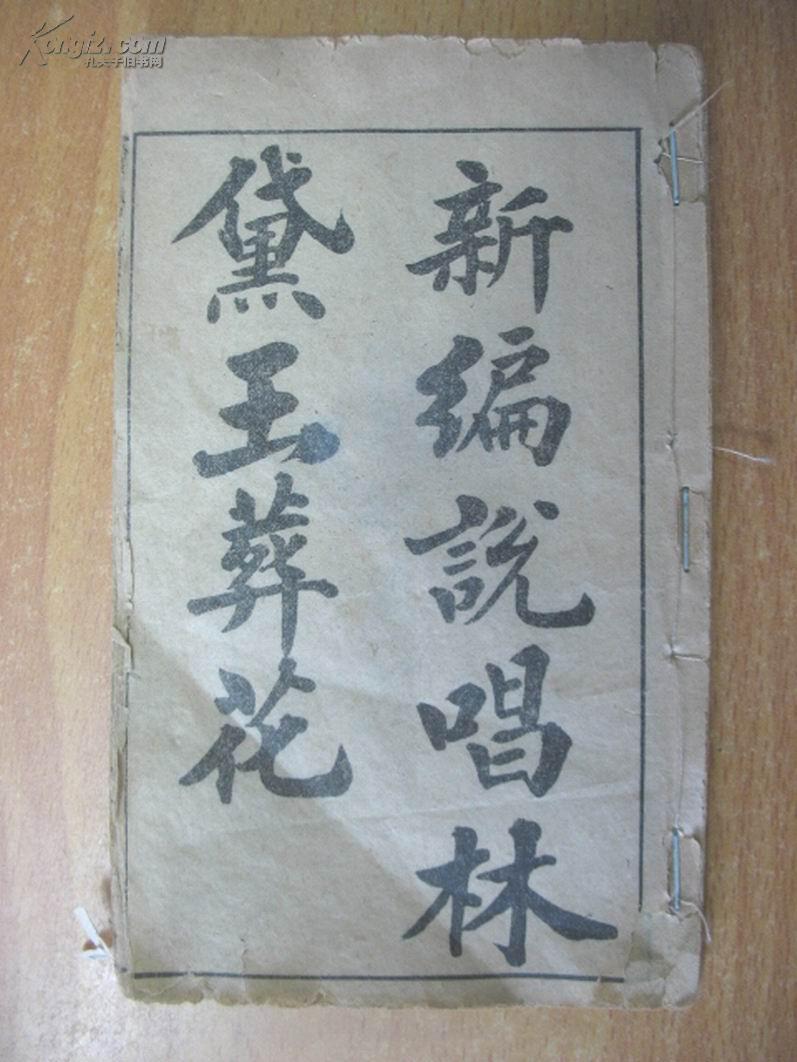 新編說唱林
黛玉葬花
Kongfz.com
孔夫子旧书网